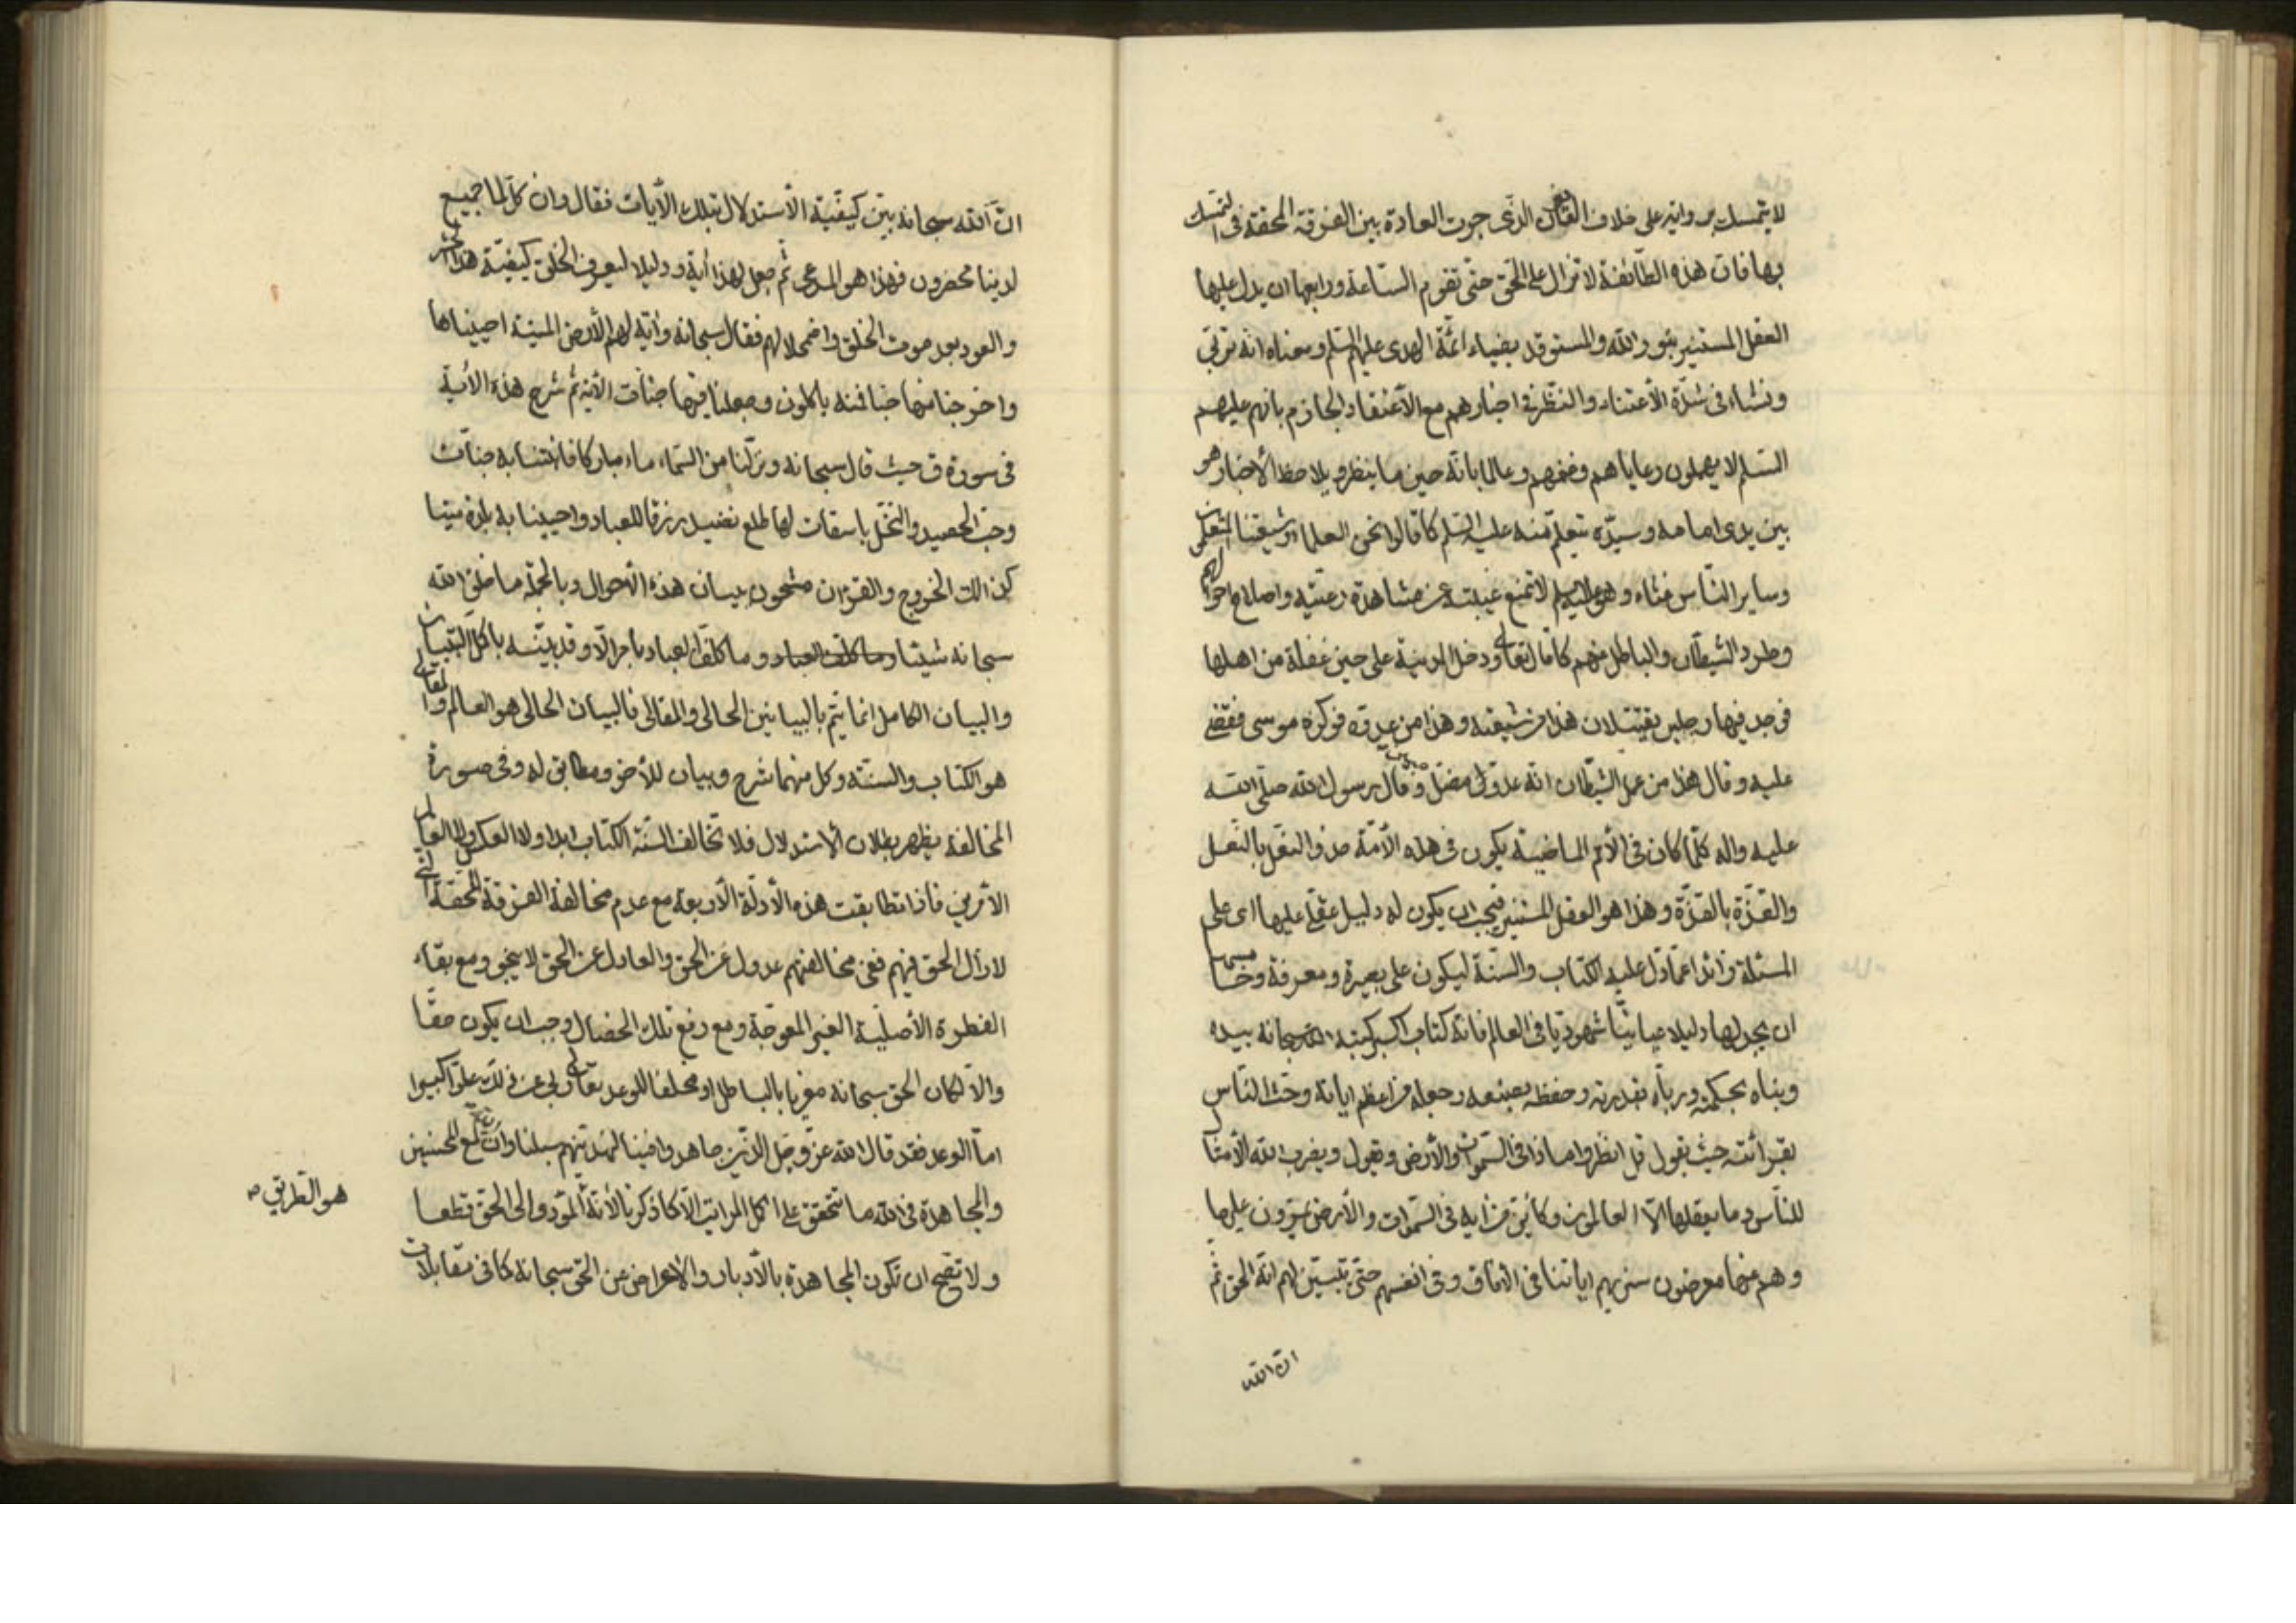 لا يتمسك برواية على خلاف القائل الذي جرت العادة بين الفرقة المحقة في التمسك
بها فان هذه الطائفة لا تزال على الحق حتى تقوم الساعة ورابعها ان يدل عليها
العقل المستنير بنور الله والمستوقد بضياء ائمة الهدى عليهم السلم ومعناه انه تربى
ونشاء في شدة الاعتناء والنظر في اخبارهم مع الاعتقاد الجازم بانهم عليهم
السلم لا يهملون رعاياهم وغنمهم وعالما بانه حين ما ينظر ويلاحظ الأخبار هو
بين يدى امامه وسيده يتعلم منه عليه السلم كما قالوا نحن العلماء وشيعتنا المتعلمون
وساير الناس غثاء وهو عليه السلم لا تمنع غيبته عن مشاهدة رعيته واصلاح احوالهم
وطرد الشيطان والباطل عنهم كما قال تعالى ودخل المدينة على حين غفلة من اهلها
فوجد فيها رجلين يقتتلان هذا من شيعته وهذا من عدوه فوكزه موسى فقضى
عليه وقال هذا من عمل الشيطان انه عدو مضل مبين وقال رسول الله صلى الله
عليه واله كلما كان في الأمم الماضية يكون في هذه الأمة حذو النعل بالنعل
والقذة بالقذة وهذا هو العقل المستنير فيجب ان يكون له دليل عقلي عليها اى على
المسئلة زائدا عما دل عليه الكتاب والسنة ليكون على بصيرة ومعرفة وخامسها
ان يجد لها دليلا عيانيا شهوديا في العالم فانه كتاب اكبر كتبه الله سبحانه بيده
وبناه بحكمته ورباه بقدرته وحفظه بصنعه وجعله من اعظم اياته وحث الناس
لقرائته حيث يقول قل انظروا ماذا في السموات والأرض ويقول ويضرب الله الأمثال
للناس وما يعقلها الا العالمون وكأين من اية في السموات والأرض يمرون عليها
وهم عنها معرضون سنريهم اياتنا في الافاق وفي انفسهم حتى يتبين لهم انه الحق ثم
ان الله
ان الله سبحانه بين كيفية الأستدلال بتلك الأيات فقال وان كل لما جميع
لدينا محضرون فهذا هو المدعى ثم جعل لهذا أية ودليلا ليعرف الخلق كيفية هذا الحشر
والعود بعد موت الخلق واضمحلالهم فقال سبحانه واية لهم الأرض الميتة احييناها
واخرجنا منها حبا فمنه ياكلون وجعلنا فيها جنات الاية ثم شرح هذه الأية
في سورة ق حيث قال سبحانه ونزلنا من السماء ماء مباركا فانبتنا به جنات
وحب الحصيد والنخل باسقات لها طلع نضيد رزقا للعباد واحيينا به بلدة ميتا
كذالك الخروج والقران مشحون ببيان هذه الاحوال وبالجملة ما خلق الله
سبحانه شيئا وما كلف العباد وما كلف العباد بامر الا وقد بينه باكمل التبيان
والبيان الكامل انما يتم بالبيانين الحالى والمقالى فالبيان الحالى هو العالم والمقالى
هو الكتاب والسنة وكل منهما شرح وبيان للأخر ومطابق له وفي صورة
المخالفة يظهر بطلان الأستدلال فلا تخالف السنة الكتاب ابدا ولا العكس ولا العالم
الأمرين فاذا تطابقت هذه الأدلة الأربعة مع عدم مخالفة الفرقة المحقة التي
لا زال الحق فيهم ففي مخالفتهم عدول عن الحق والعادل عن الحق لا ينجى ومع بقاء
الفطرة الأصلية الغير المعوجة ومع رفع تلك الخصال وجب ان يكون حقا
والا لكان الحق سبحانه مغريا بالباطل او مخلفا للوعد تعالى ربى عن ذلك علوا كبيرا
اما الوعد فقد قال الله عز وجل الذين جاهدوا فينا لنهدينهم سبلنا وان الله لمع المحسنين
والمجاهدة في الله ما تتحقق على اكمل المراتب الا كما ذكرنا لأنه المؤدى الى الحق قطعا
هو الطريق
ولا تصح ان تكون المجاهدة بالأدبار والأعراض عن الحق سبحانه كما في مقابلات